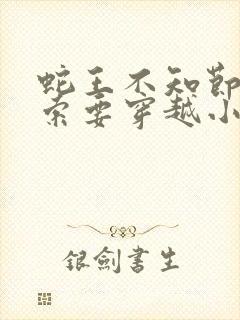 蛇王不知節
索要穿越小
銀劍書生